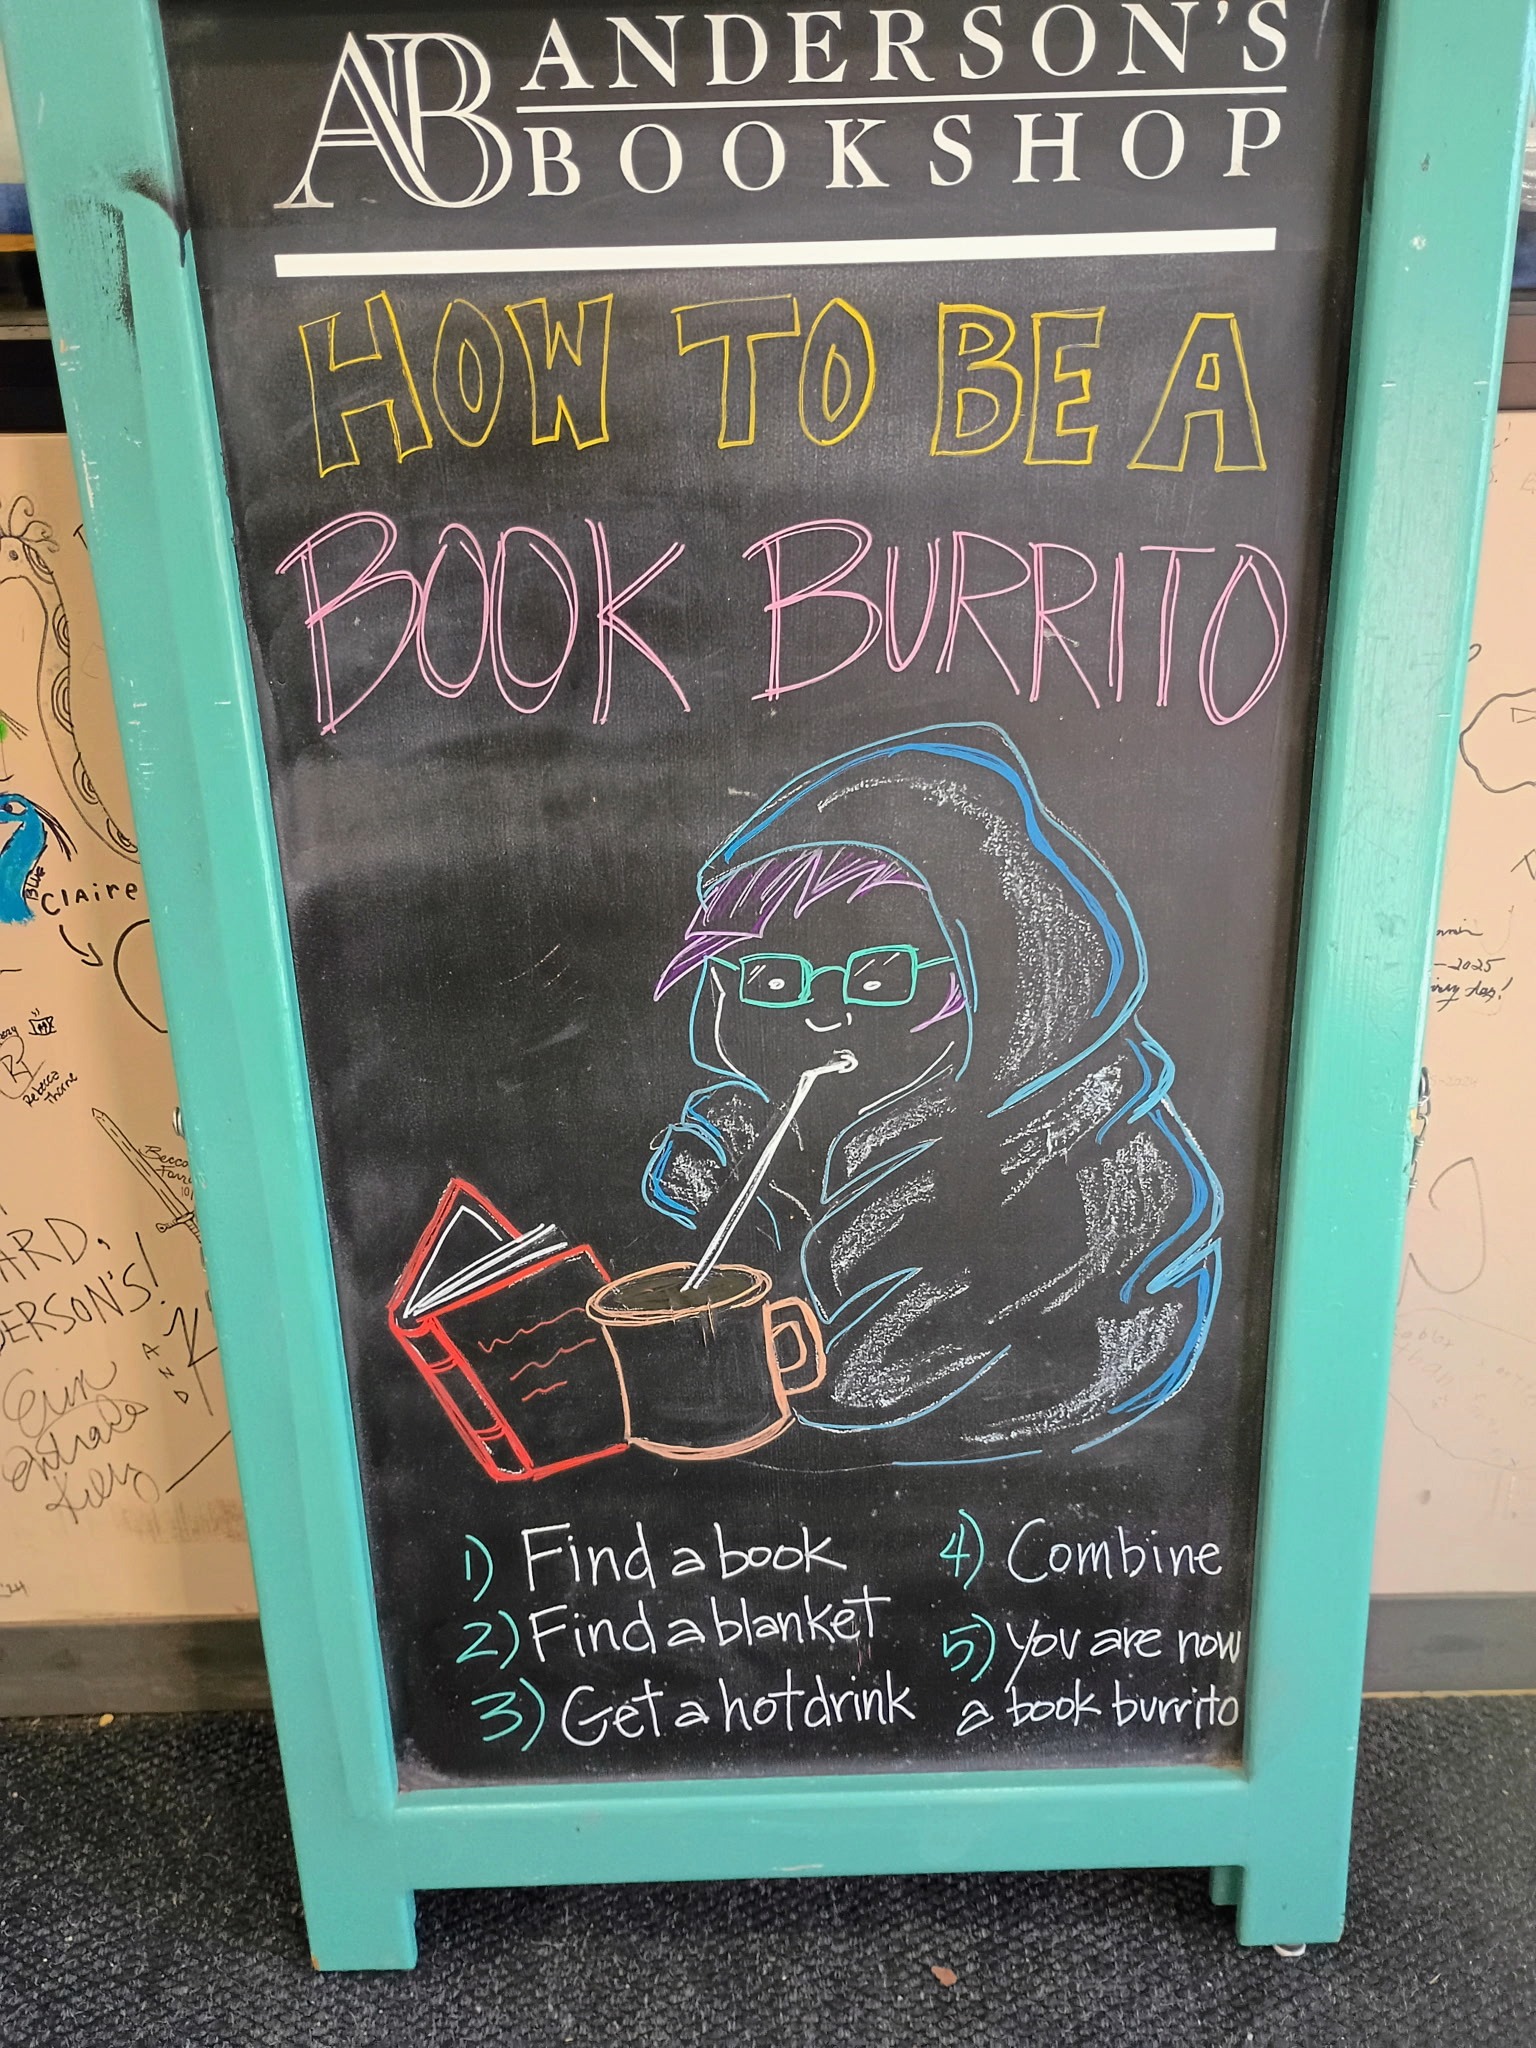 AB ANDERSON'S
BOOKSHOP
HOW TO BE A
BOOK BURRITO
1) Find a book
2) Find a blanket
3) Get a hot drink
4) Combine
5) You are now
a book burrito
BLUE
CLAIRE
Rebecca
Thorne
Becca
ERSON'S!
Erin
Kelly
AND
-2025